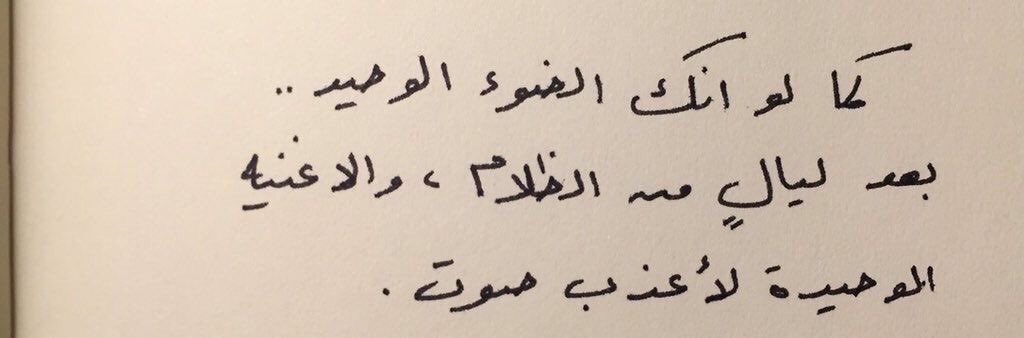 كما لو انك الضوء الوحيد ..
بعد ليالٍ من الظلام ، والاغنيه
الوحيدة لأعذب صوت .